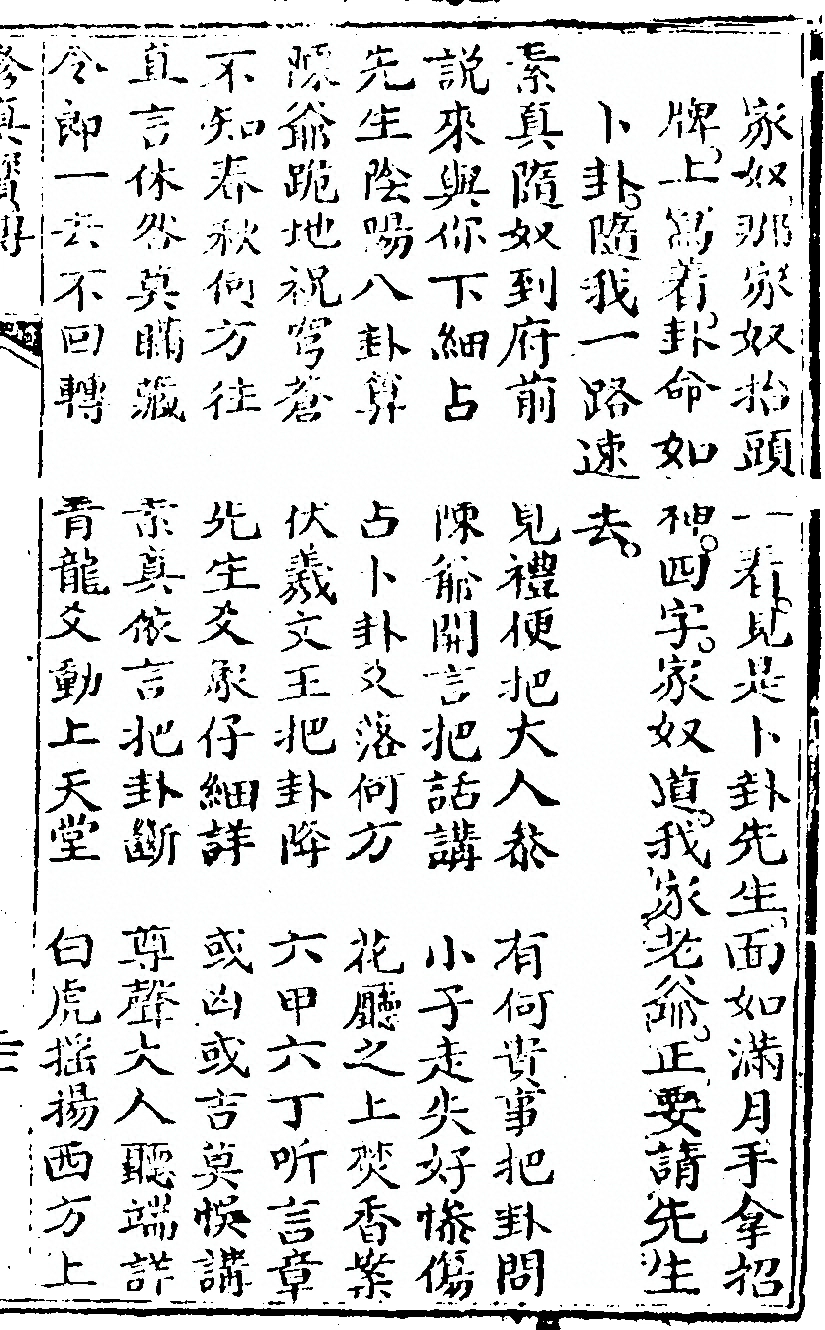 家奴那家奴抬頭一看。見是卜卦先生面如滿月手拿招
牌。上寫着。卦命如神。四字。家奴道。我家老爺。正要請先生
卜卦。隨我一路速去。
素真隨奴到府前 見禮便把大人叅 有何貴事把卦問
說來與你下細占 陳爺開言把話講 小子走失好慘傷
先生陰陽八卦算 占卜卦爻落何方 花廳之上焚香案
陳爺跪地祝穹蒼 伏羲文王把卦降 六甲六丁听言章
不知春秋何方往 先生爻象仔細詳 或凶或吉莫悞講
直言休咎莫瞞藏 素真依言把卦斷 尊聲大人聽端詳
令郎一去不回轉 青龍爻動上天堂 白虎搖揚西方上
修真寶傳